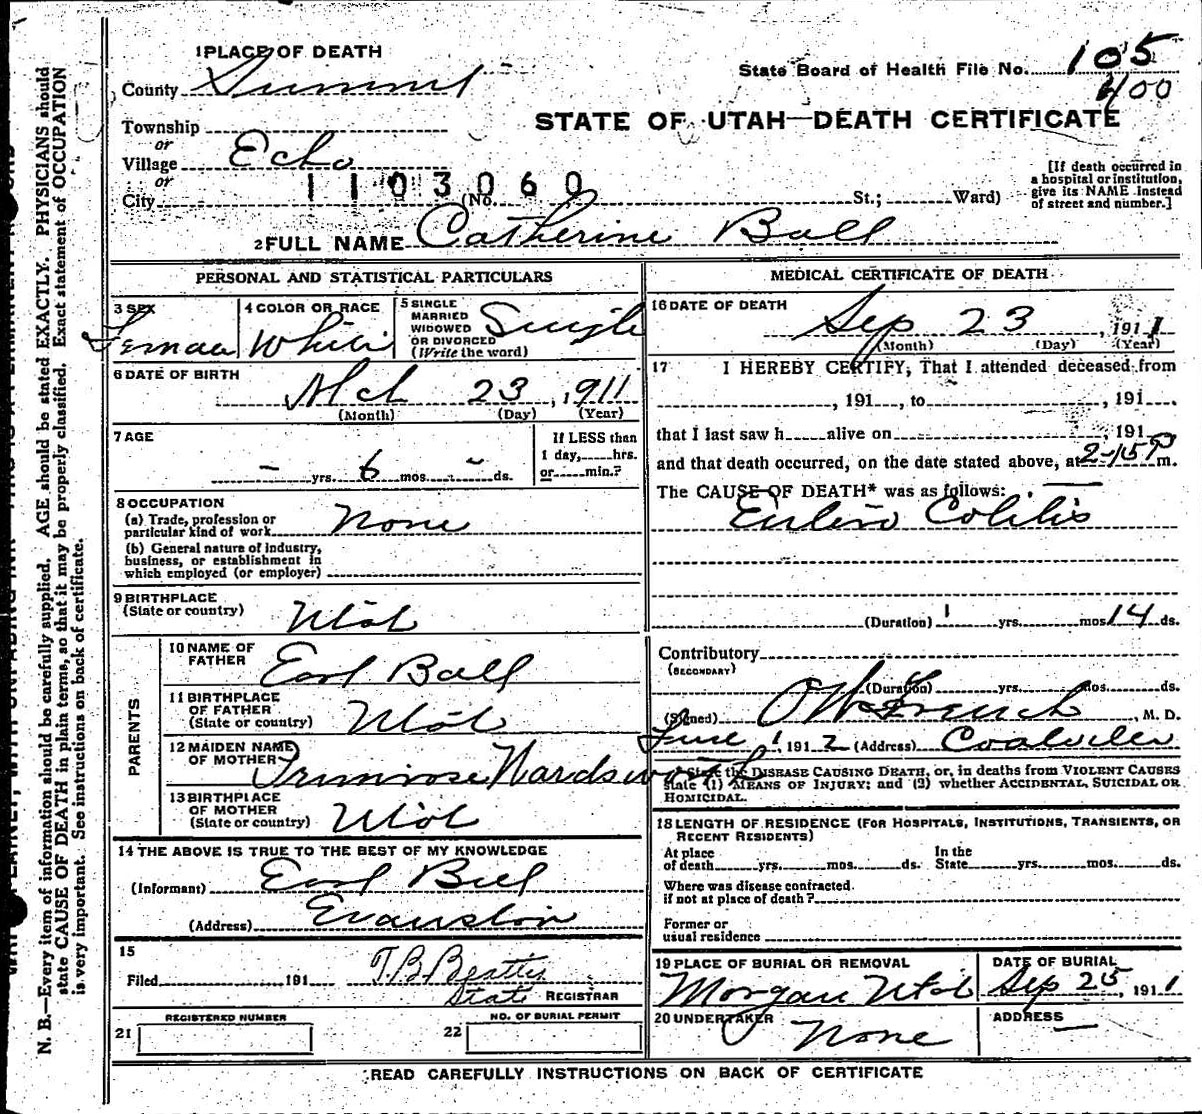 1 PLACE OF DEATH
County Summit
State Board of Health File No. 105
400
Township
or
Village Echo
or
City (No. St.; Ward)
1103060
STATE OF UTAH—DEATH CERTIFICATE
[If death occurred in
a hospital or institution,
give its NAME instead
of street and number.]
2 FULL NAME Catherine Ball
PERSONAL AND STATISTICAL PARTICULARS
3 SEX
Female
4 COLOR OR RACE
White
5 SINGLE
MARRIED
WIDOWED
OR DIVORCED
(Write the word)
Single
6 DATE OF BIRTH
Mch 23, 1911
(Month) (Day) (Year)
7 AGE
- yrs. 6 mos. - ds.
If LESS than
1 day, hrs.
or min.?
8 OCCUPATION
(a) Trade, profession or
particular kind of work None
(b) General nature of industry,
business, or establishment in
which employed (or employer)
9 BIRTHPLACE
(State or country) Utah
PARENTS
10 NAME OF
FATHER Earl Ball
11 BIRTHPLACE
OF FATHER
(State or country) Utah
12 MAIDEN NAME
OF MOTHER Primrose Wardsworth
13 BIRTHPLACE
OF MOTHER
(State or country) Utah
14 THE ABOVE IS TRUE TO THE BEST OF MY KNOWLEDGE
(Informant) Earl Bell
(Address) Evanston
15
Filed 191 T.B. Beatty
State REGISTRAR
REGISTERED NUMBER
21
NO. OF BURIAL PERMIT
22
MEDICAL CERTIFICATE OF DEATH
16 DATE OF DEATH
Sep 23, 1911
(Month) (Day) (Year)
17 I HEREBY CERTIFY, That I attended deceased from
, 191 , to , 191 .
that I last saw h alive on , 191
and that death occurred, on the date stated above, at 2-15 P m.
The CAUSE OF DEATH* was as follows:
Entero Colitis
(Duration) yrs. mos. 14 ds.
Contributory
(SECONDARY)
(Duration) yrs. mos. ds.
(Signed) O W French, M. D.
June 1, 1912 (Address) Coalville
* State the DISEASE CAUSING DEATH, or, in deaths from VIOLENT CAUSES
state (1) MEANS OF INJURY; and (2) whether ACCIDENTAL, SUICIDAL OR
HOMICIDAL.
18 LENGTH OF RESIDENCE (FOR HOSPITALS, INSTITUTIONS, TRANSIENTS, OR
RECENT RESIDENTS)
At place
of death yrs. mos. ds.
In the
State yrs. mos. ds.
Where was disease contracted
if not at place of death?
Former or
usual residence
19 PLACE OF BURIAL OR REMOVAL
Morgan Utah
DATE OF BURIAL
Sep 25, 1911
20 UNDERTAKER
None
ADDRESS
—
READ CAREFULLY INSTRUCTIONS ON BACK OF CERTIFICATE
N. B.—Every item of information should be carefully supplied. AGE should be stated EXACTLY. PHYSICIANS should
state CAUSE OF DEATH in plain terms, so that it may be properly classified. Exact statement of OCCUPATION
is very important. See instructions on back of certificate.